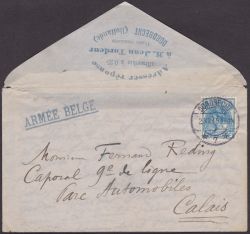 Adresser réponse
à M. Jean Tardeur
DORDRECHT (Hollande)
ARMÉE BELGE
DORDRECHT
Monsieur Fernand Reding
Caporal 9e de ligne
Parc Automobiles
Calais